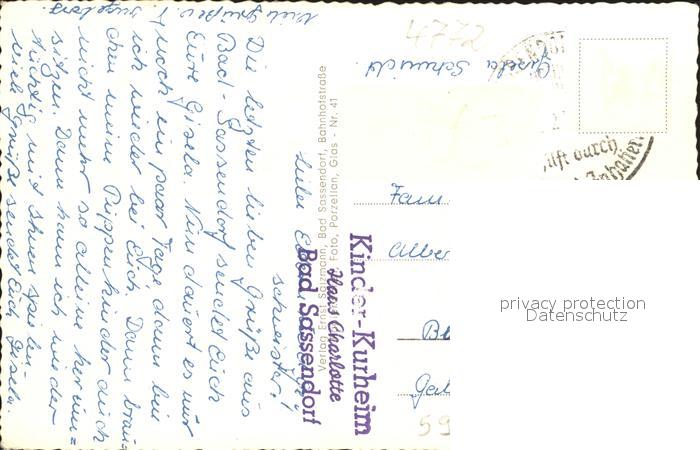 4772
Gisela Schmidt.
hilft durch
Fam.
Alber
Gel
59
privacy protection
Datenschutz
Kinder-Kurheim
Haus Charlotte
Bad Sassendorf
Verlag Ernst Salzmann, Bad Sassendorf, Bahnhofstraße
Foto, Porzellan, Glas - Nr. 41
Liebe
Die letzten lieben Grüße aus
Bad-Sassendorf sendet Euch
Eure Gisela. Nun dauert es nur
noch ein paar Tage dann bin
ich wieder bei Euch. Dann brau=
chen meine Puppenkinder auch
nicht mehr so alleine herum=
sitzen. Dann kann ich wieder
tüchtig mit Ihnen spielen.
Viele Grüße sendet Euch Gisela